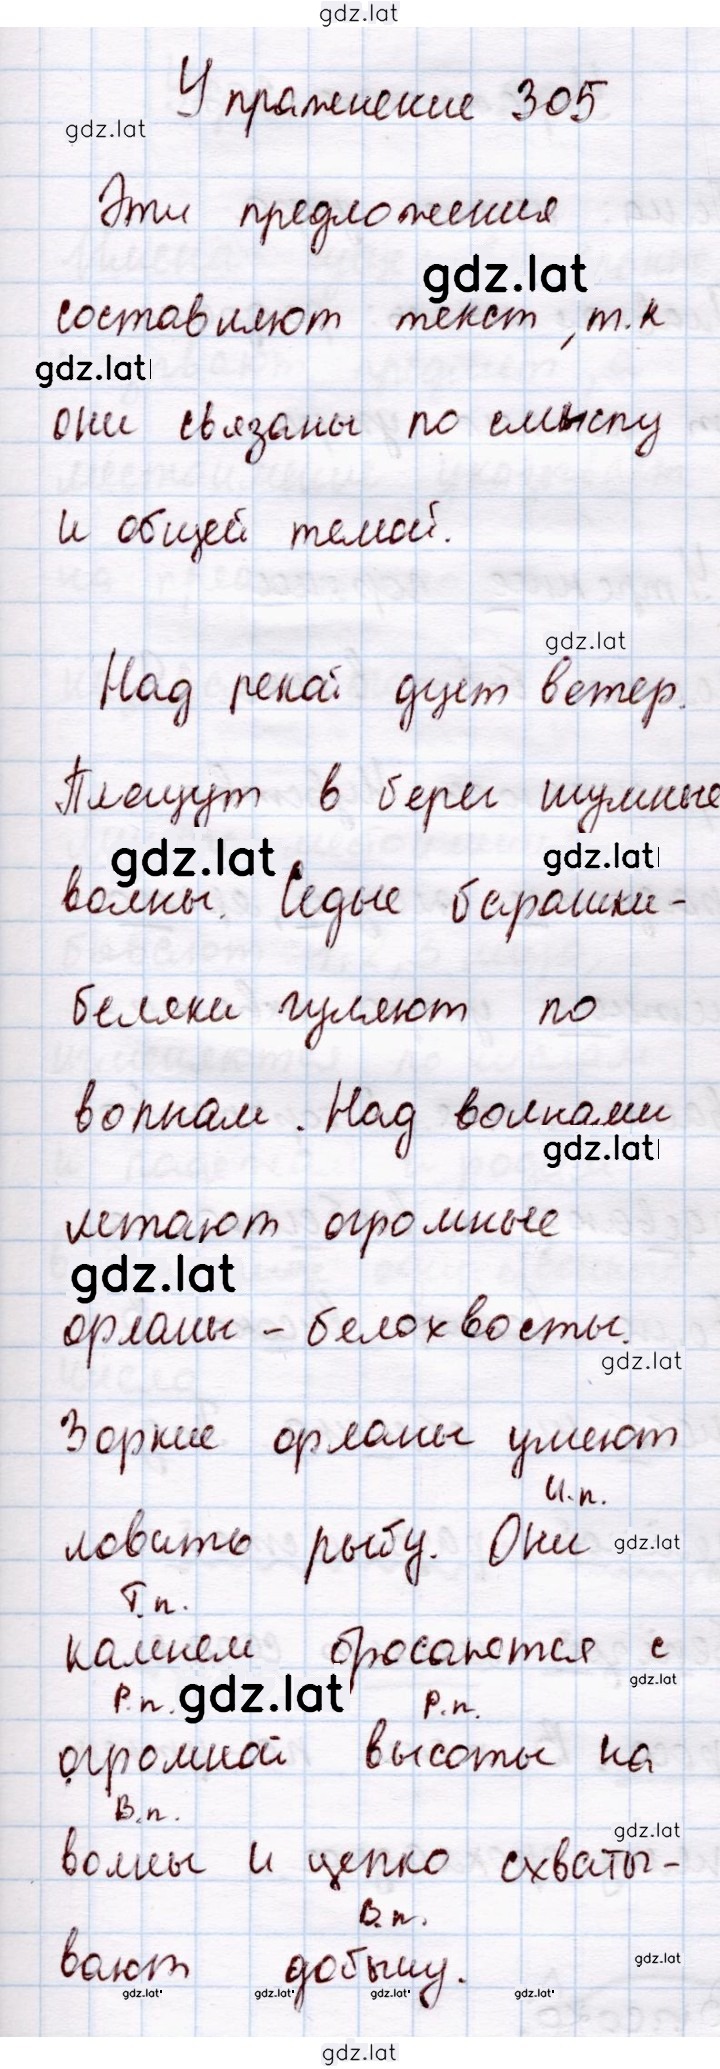 gdz.lat
Упражнение 305
gdz.lat
Эти предложения
gdz.lat
составляют текст, т.к
gdz.lat
они связаны по смыслу
и общей темой.
gdz.lat
Над рекой дует ветер.
Плещут в берег шумные
gdz.lat gdz.lat
волны. Седые барашки-
беляки гуляют по
волнам. Над волнами
gdz.lat
летают огромные
gdz.lat
орланы - белохвосты.
gdz.lat
Зоркие орланы умеют
И.п.
ловить рыбу. Они gdz.lat
Т.п.
камнем бросаются с
gdz.lat
Р.п. gdz.lat Р.п.
огромной высоты на
В.п.
gdz.lat
волны и цепко схваты-
В.п.
вают добычу. gdz.lat
gdz.lat gdz.lat gdz.lat gdz.lat
gdz.lat